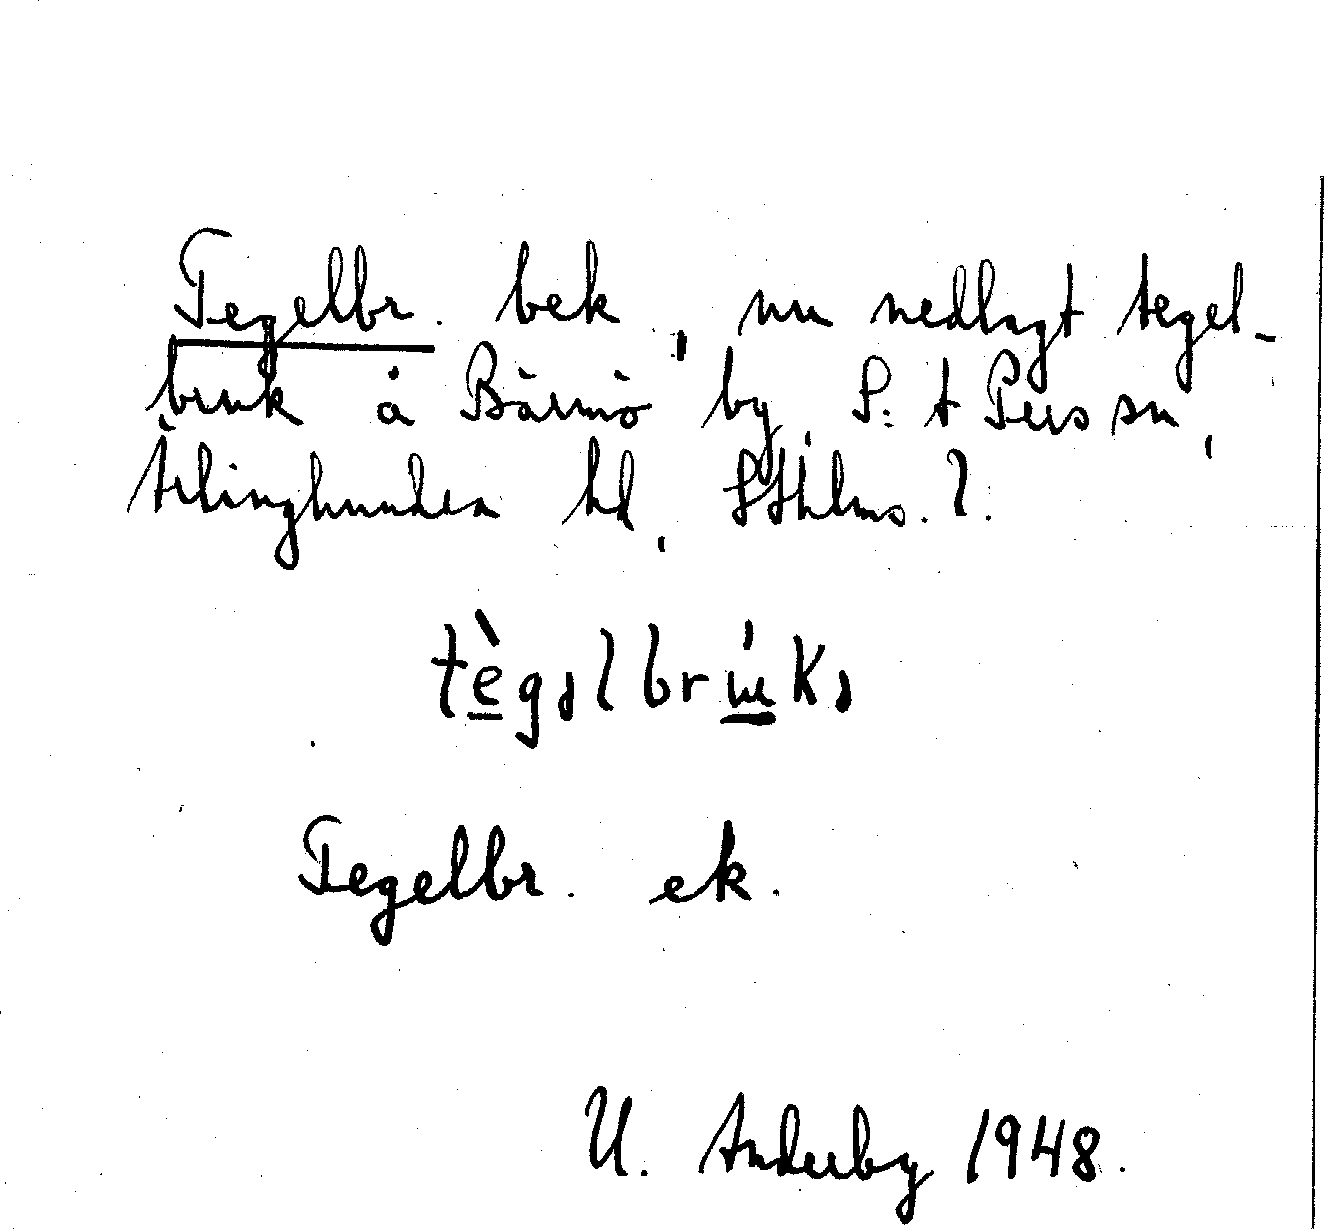 Tegelbr. bek, nu nedlagt tegel-
bruk å Bärmö by, S:t Pers sn,
Ärlinghundra hd, Sthlms. l.
tègəlbrúkə
Tegelbr. ek.
U. Anderby 1948.